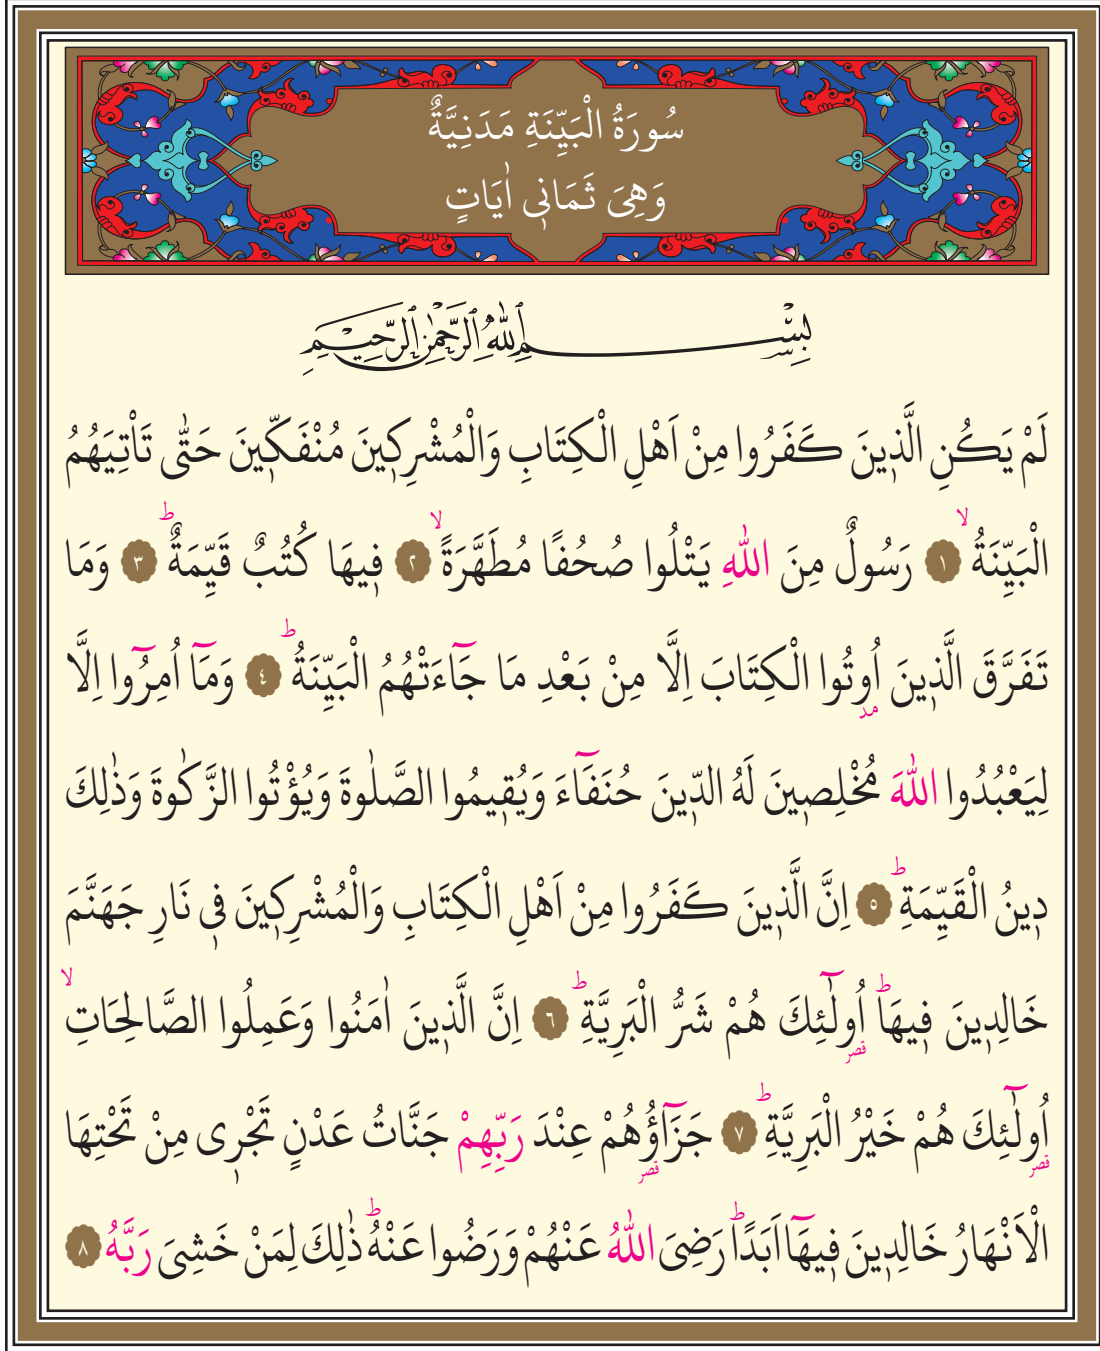 سُورَةُ الْبَيِّنَةِ مَدَنِيَّةٌ
وَهِىَ ثَمَانٖى اٰيَاتٍ
بِسْمِ اللّٰهِ الرَّحْمٰنِ الرَّحٖيمِ
لَمْ يَكُنِ الَّذٖينَ كَفَرُوا مِنْ اَهْلِ الْكِتَابِ وَالْمُشْرِكٖينَ مُنْفَكّٖينَ حَتّٰى تَاْتِيَهُمُ
الْبَيِّنَةُۙ ﴿١﴾ رَسُولٌ مِنَ اللّٰهِ يَتْلُوا صُحُفًا مُطَهَّرَةًۙ ﴿٢﴾ فٖيهَا كُتُبٌ قَيِّمَةٌؕ ﴿٣﴾ وَمَا
تَفَرَّقَ الَّذٖينَ اُوتُوا الْكِتَابَ اِلَّا مِنْ بَعْدِ مَا جَٓاءَتْهُمُ الْبَيِّنَةُؕ ﴿٤﴾ وَمَٓا اُمِرُٓوا اِلَّا
مد
لِيَعْبُدُوا اللّٰهَ مُخْلِصٖينَ لَهُ الدّٖينَ حُنَفَٓاءَ وَيُقٖيمُوا الصَّلٰوةَ وَيُؤْتُوا الزَّكٰوةَ وَذٰلِكَ
دٖينُ الْقَيِّمَةِؕ ﴿٥﴾ اِنَّ الَّذٖينَ كَفَرُوا مِنْ اَهْلِ الْكِتَابِ وَالْمُشْرِكٖينَ فٖى نَارِ جَهَنَّمَ
خَالِدٖينَ فٖيهَاؕ اُولٰٓئِكَ هُمْ شَرُّ الْبَرِيَّةِؕ ﴿٦﴾ اِنَّ الَّذٖينَ اٰمَنُوا وَعَمِلُوا الصَّالِحَاتِۙ
قصر
اُولٰٓئِكَ هُمْ خَيْرُ الْبَرِيَّةِؕ ﴿٧﴾ جَزَٓاؤُهُمْ عِنْدَ رَبِّهِمْ جَنَّاتُ عَدْنٍ تَجْرٖى مِنْ تَحْتِهَا
قصر قصر
الْاَنْهَارُ خَالِدٖينَ فٖيهَٓا اَبَدًاؕ رَضِىَ اللّٰهُ عَنْهُمْ وَرَضُوا عَنْهُؕ ذٰلِكَ لِمَنْ خَشِىَ رَبَّهُ ﴿٨﴾